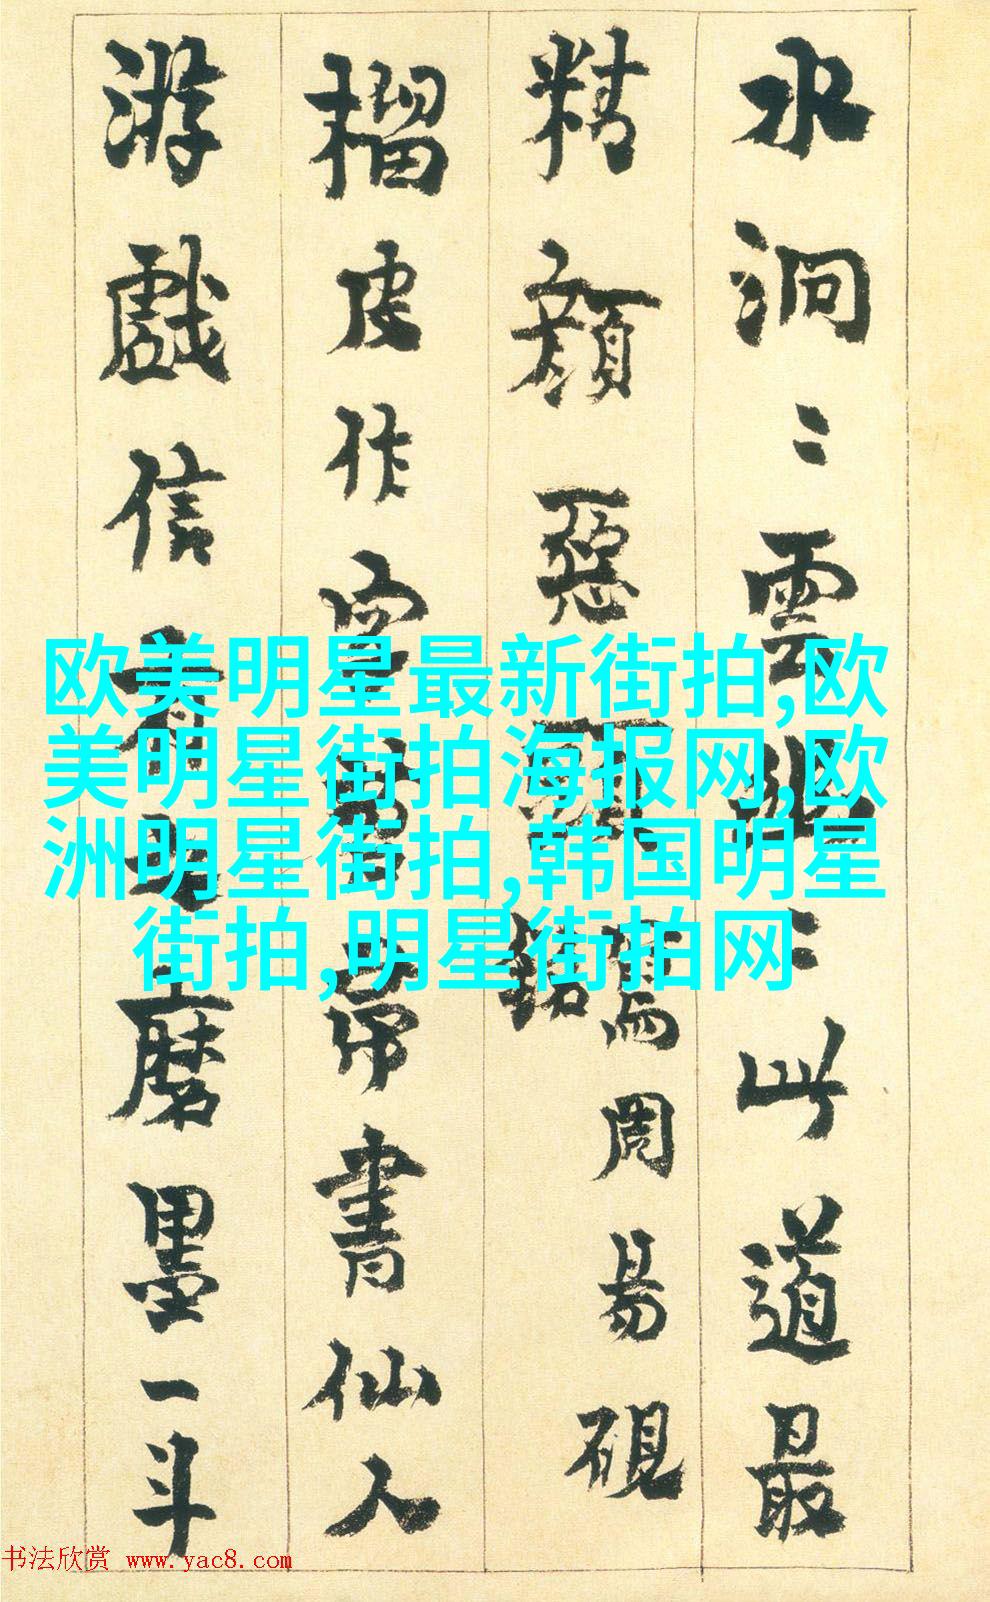 水洞〻雲幽〻此道最
精顏惡頭寫周易硯
榴皮作字苔帚書仙人
游戲信有之磨墨一斗
欧美明星最新街拍,欧
美明星街拍海报网,欧
洲明星街拍,韩国明星
街拍,明星街拍网
书法欣赏 www.yac8.com